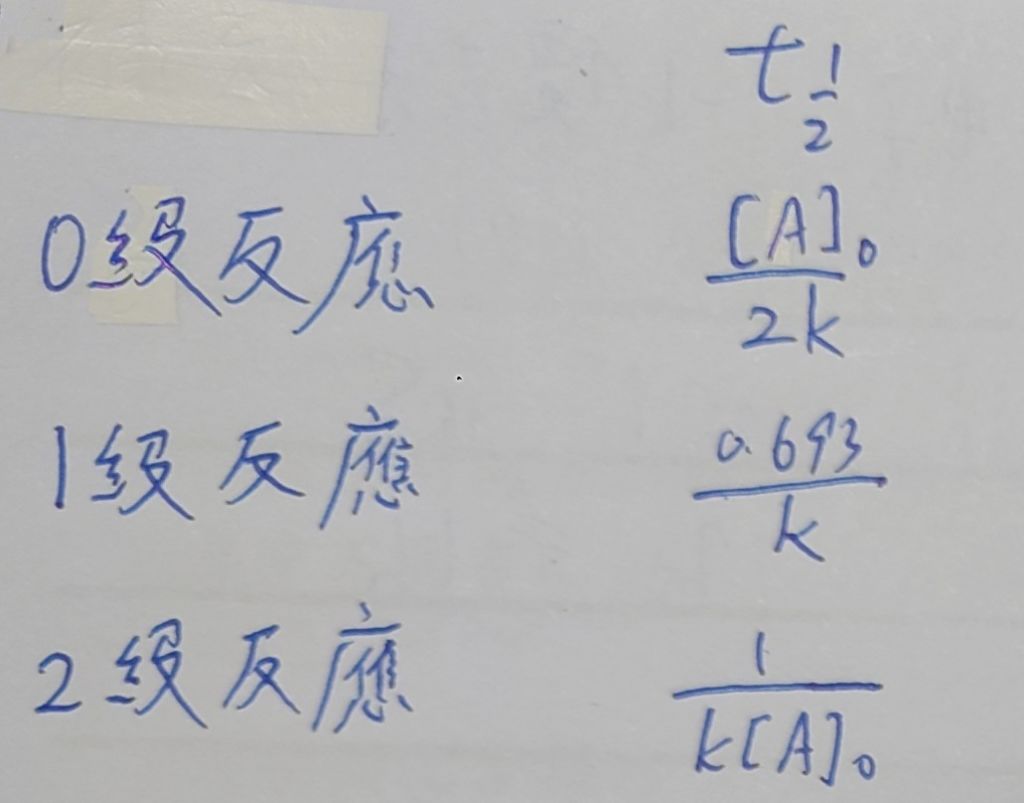 t 1/2
0級反應 [A]₀/2k
1級反應 0.693/k
2級反應 1/k[A]₀